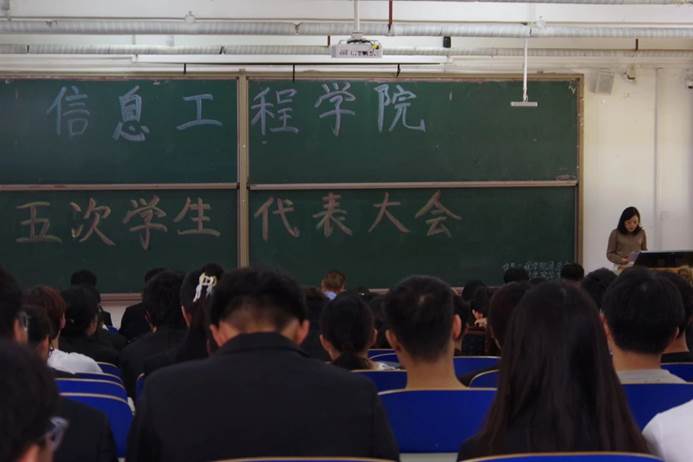 信息工程学院
五次学生代表大会